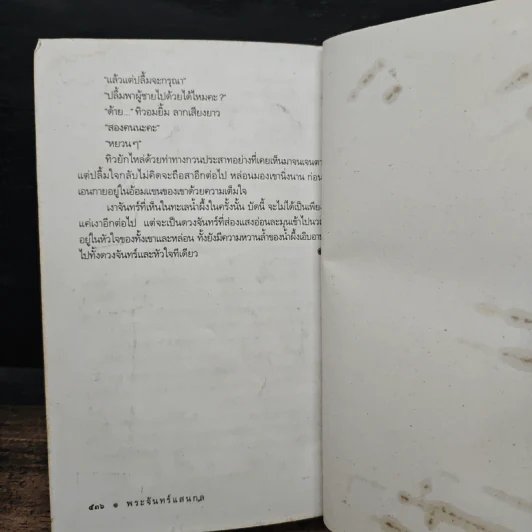 "แล้วแต่ปลื้มจะกรุณา"
"ปลื้มพาผู้ชายไปด้วยได้ไหมคะ?"
"ต๊าย..." ทิวอมยิ้ม ลากเสียงยาว
"สองคนนะคะ"
"หยวน ๆ"
ทิวยักไหล่ด้วยท่าทางกวนประสาทอย่างที่เคยเห็นมาจนเจนตา
แต่ปลื้มใจกลับไม่คิดจะถือสาอีกต่อไป หล่อนมองเขานิ่งนาน ก่อน
เอนกายอยู่ในอ้อมแขนของเขาด้วยความเต็มใจ
เงาจันทร์ที่เห็นในทะเลน้ำผึ้งในครั้งนั้น บัดนี้ จะไม่ได้เป็นเพียง
แค่เงาอีกต่อไป แต่จะเป็นดวงจันทร์ที่ส่องแสงอ่อนละมุนเข้าไป
อยู่ในหัวใจของทั้งเขาและหล่อน ทั้งยังมีความหวานล้ำของน้ำผึ้งเอิบอาบ
ไปทั้งดวงจันทร์และหัวใจทีเดียว
๕๓๖ ๑ พระจันทร์แสนกล